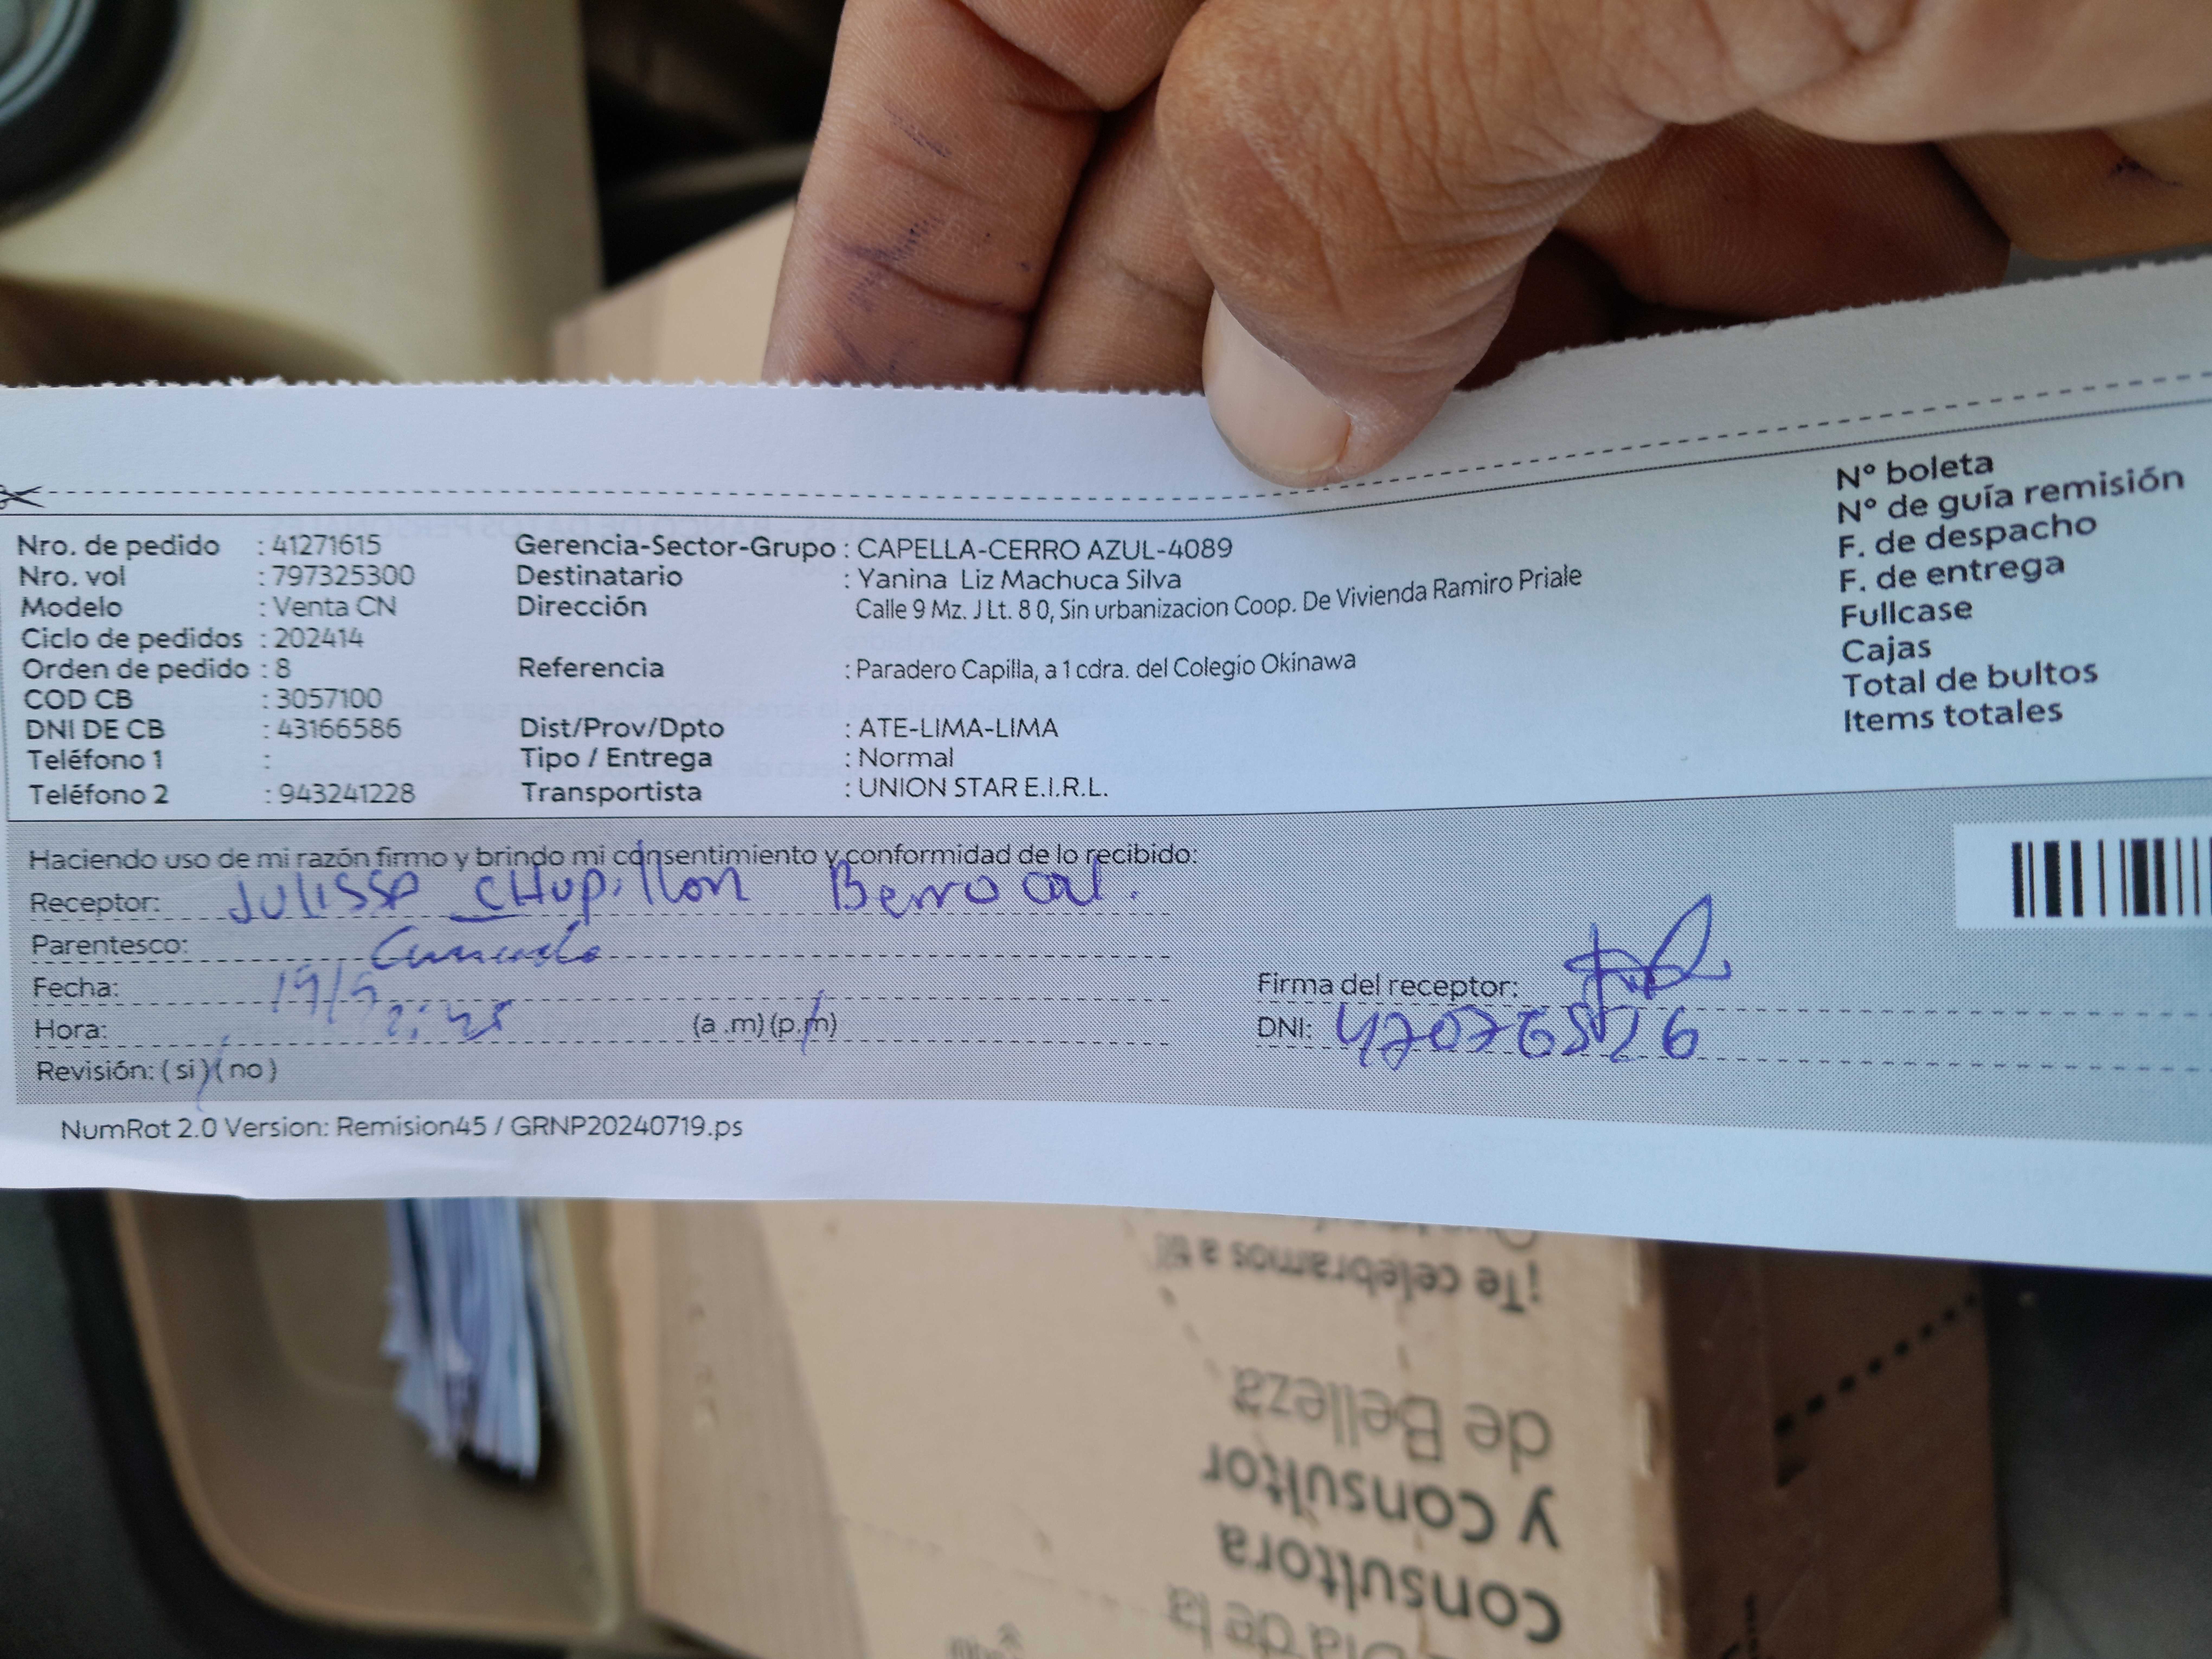 Nº boleta
Nº de guía remisión
F. de despacho
F. de entrega
Fullcase
Cajas
Total de bultos
Items totales
Nro. de pedido : 41271615 Gerencia-Sector-Grupo : CAPELLA-CERRO AZUL-4089
Nro. vol : 797325300 Destinatario : Yanina Liz Machuca Silva
Modelo : Venta CN Dirección Calle 9 Mz. J Lt. 8 0, Sin urbanizacion Coop. De Vivienda Ramiro Priale
Ciclo de pedidos : 202414
Orden de pedido : 8 Referencia : Paradero Capilla, a 1 cdra. del Colegio Okinawa
COD CB : 3057100
DNI DE CB : 43166586 Dist/Prov/Dpto : ATE-LIMA-LIMA
Teléfono 1 : Tipo / Entrega : Normal
Teléfono 2 : 943241228 Transportista : UNION STAR E.I.R.L.
Haciendo uso de mi razón firmo y brindo mi consentimiento y conformidad de lo recibido:
Receptor: Julissa CHupillon Berrocal.
Parentesco:
Fecha: 19/9
Hora: (a .m) (p.m)
Revisión: ( si ) ( no )
Firma del receptor:
DNI:
NumRot 2.0 Version: Remision45 / GRNP20240719.ps
Día de la
Consultora
y Consultor
de Belleza
¡Te celebramos a ti!